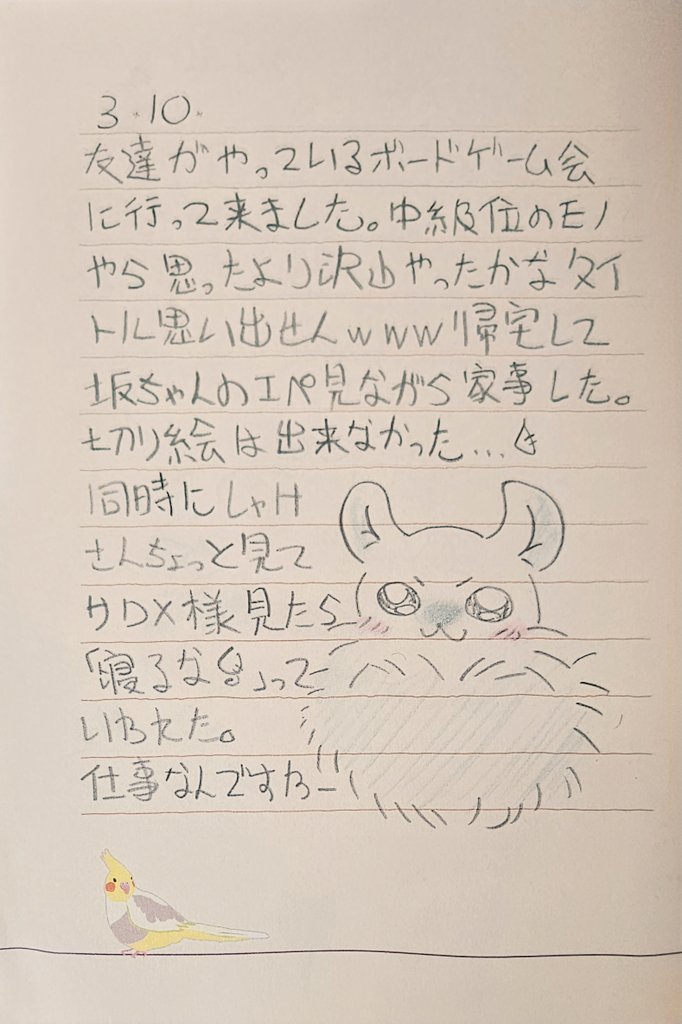 3.10.
友達がやっているボードゲーム会
に行って来ました。中級位のモノ
やら思ったより沢山やったかなタイ
トル思い出せんwww帰宅して
坂ちゃんのエペ見ながら家事した。
切り絵は出来なかった...
同時にしゃけ
さんちょっと見て
サDX様見たら
「寝るな」って
いわれた。
仕事なんですわー